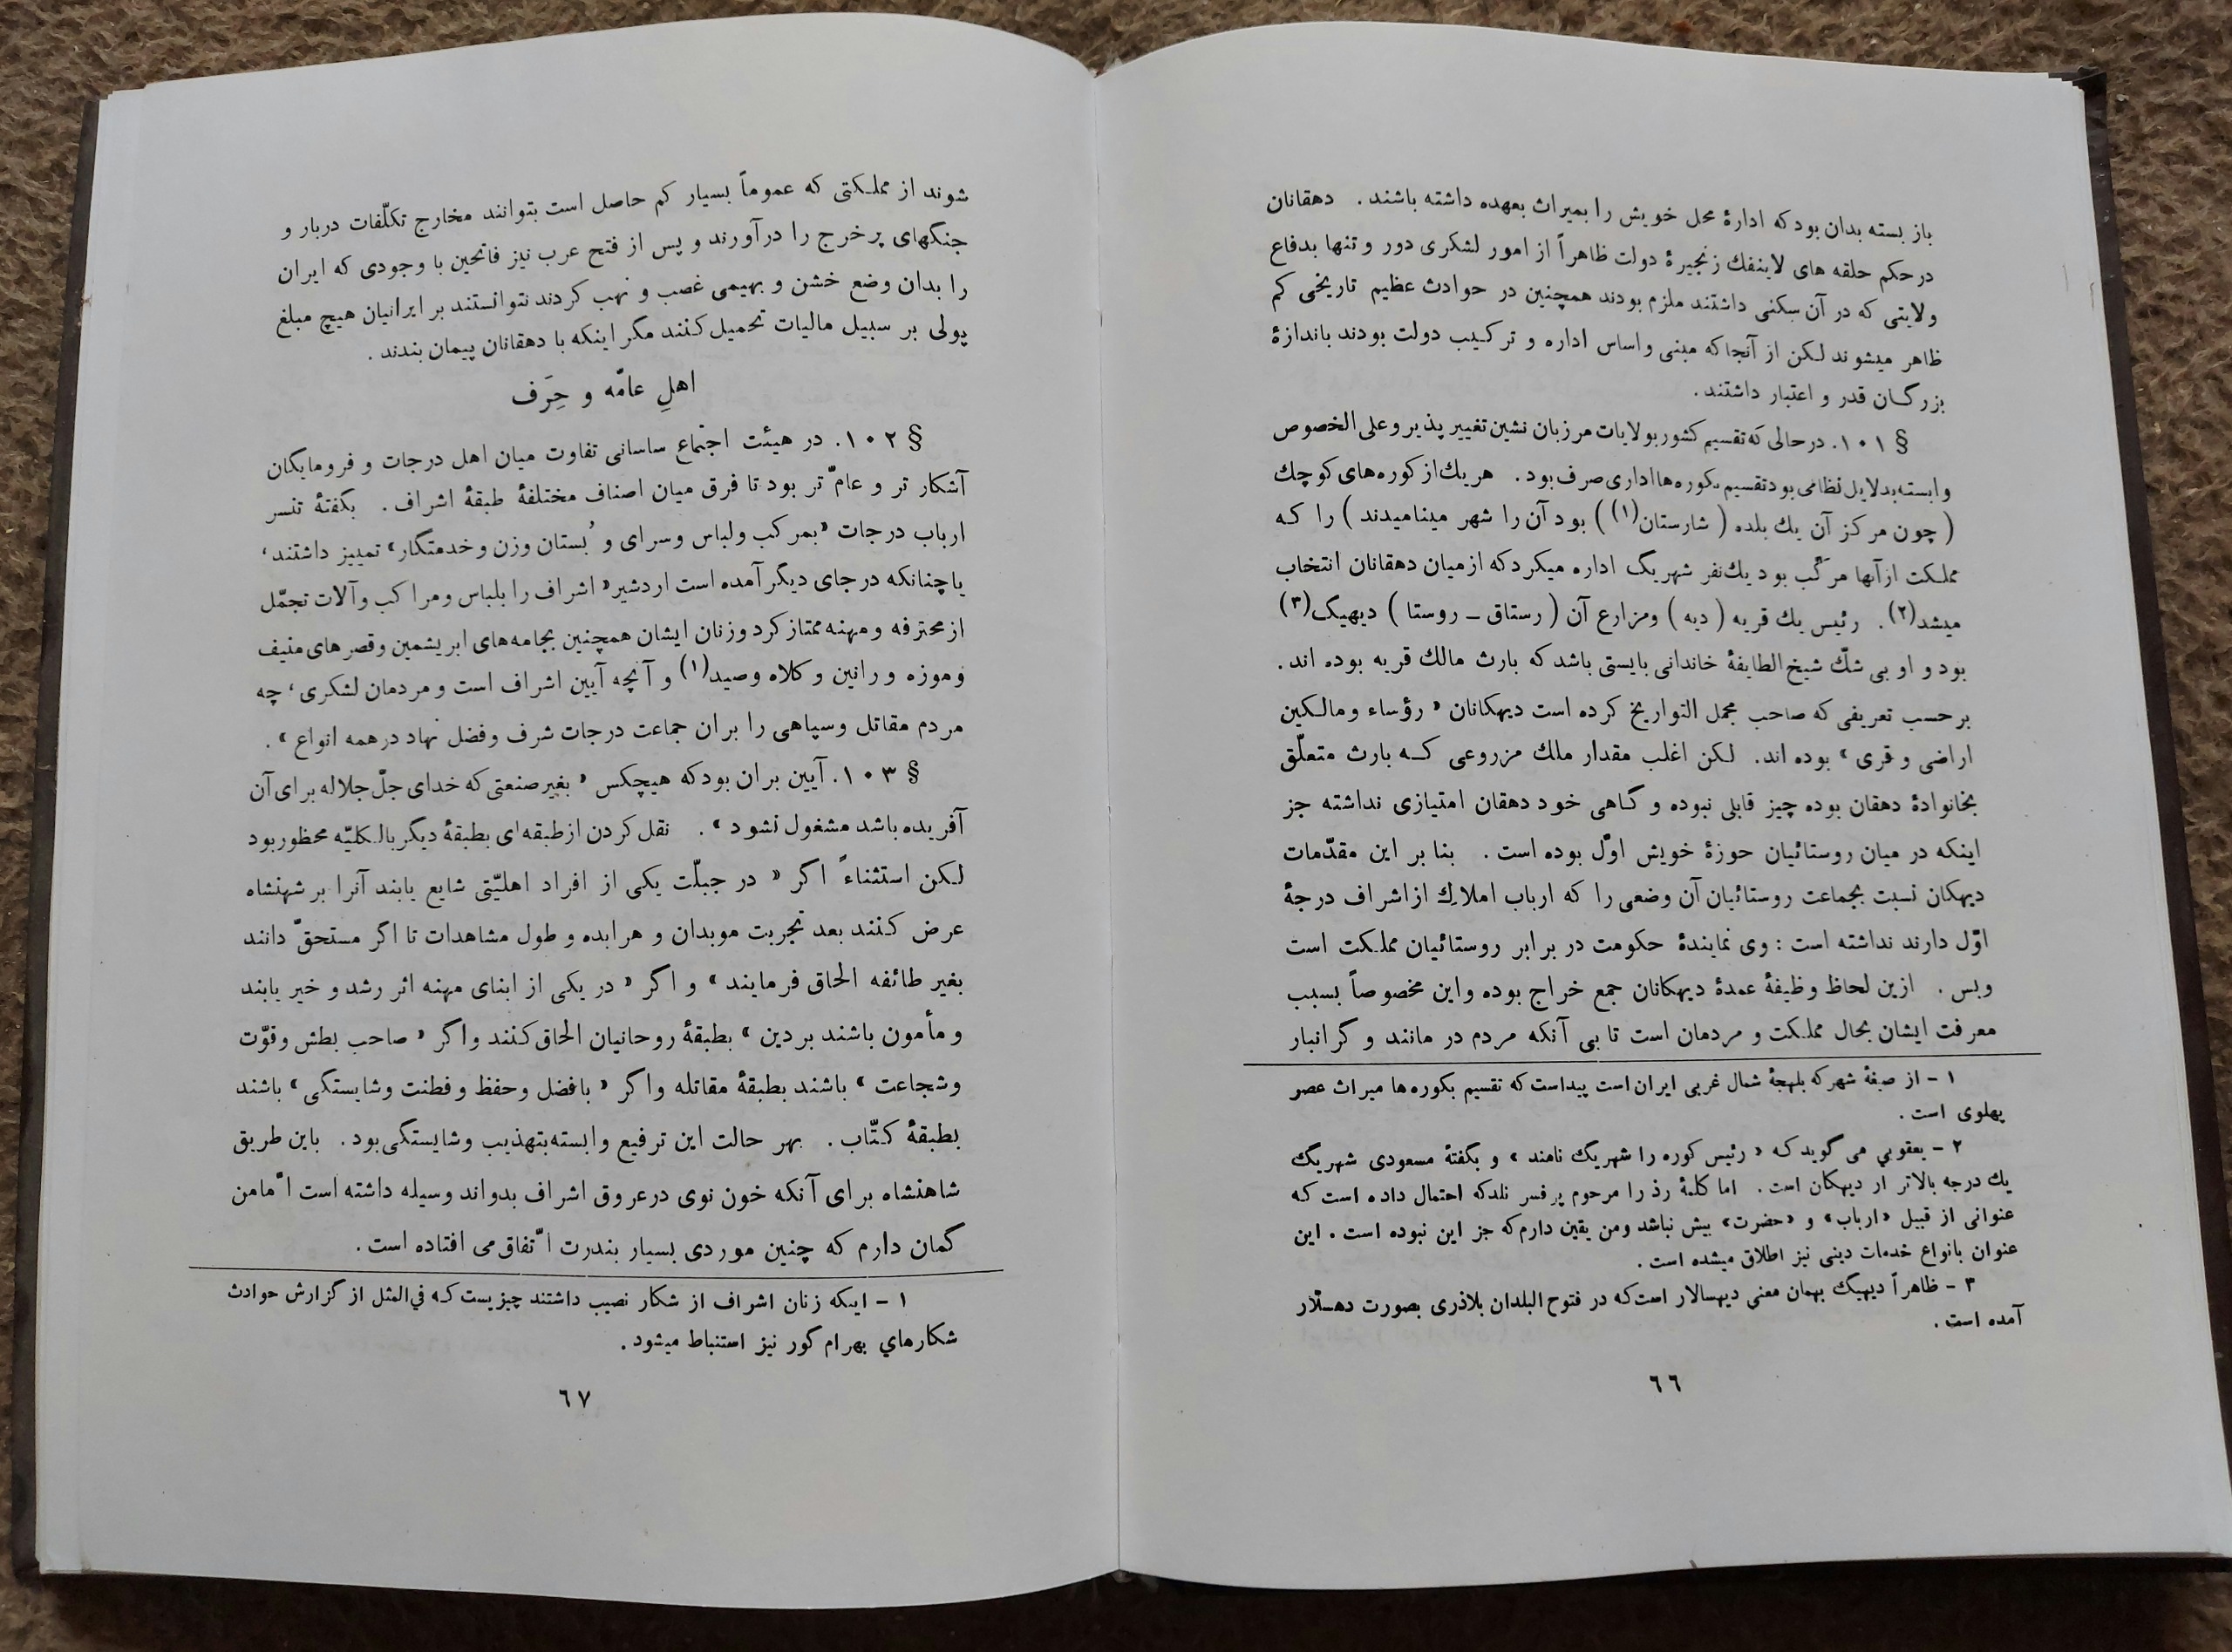 باز بسته بدان بود که ادارهٔ محل خویش را بمیراث بعهده داشته باشند. دهقانان
در حکم حلقه های لاینفك زنجیرهٔ دولت ظاهراً از امور لشکری دور و تنها بدفاع
ولایتی که در آن سکنی داشتند ملزم بودند همچنین در حوادث عظیم تاریخی کم
ظاهر میشوند لکن از آنجا که مبنی و اساس اداره و ترکیب دولت بودند باندازهٔ
بزرگان قدر و اعتبار داشتند.
§ ۱۰۱. در حالی که تقسیم کشور بولایات مرزبان نشین تغییر پذیر و علی الخصوص
وابسته بدلایل نظامی بود تقسیم بکوره ها اداری صرف بود. هر یك از کوره های کوچك
(چون مرکز آن یك بلده (شارستان(۱)) بود آن را شهر مینامیدند) را که
مملکت از آنها مرکّب بود یك نفر شهریگ اداره میکرد که از میان دهقانان انتخاب
میشد(۲). رئیس یك قریه (دیه) ومزارع آن (رستاق – روستا) دیهیگ(۳)
بود و او بی شكّ شیخ الطایفهٔ خاندانی بایستی باشد که بارث مالك قریه بوده اند.
بر حسب تعریفی که صاحب مجمل التواریخ کرده است دیهکانان «رؤساء و مالکین
اراضی و قری» بوده اند. لکن اغلب مقدار ملك مزروعی که بارث متعلّق
بخانوادهٔ دهقان بوده چیز قابلی نبوده و گاهی خود دهقان امتیازی نداشته جز
اینکه در میان روستائیان حوزهٔ خویش اوّل بوده است. بنا بر این مقدّمات
دیهکان نسبت بجماعت روستائیان آن وضعی را که ارباب املاك از اشراف درجهٔ
اوّل دارند نداشته است: وی نمایندهٔ حکومت در برابر روستائیان مملکت است
وبس. ازین لحاظ وظیفهٔ عمدهٔ دیهکانان جمع خراج بوده و این مخصوصاً بسبب
معرفت ایشان بحال مملکت و مردمان است تا بی آنکه مردم در مانند و گرانبار
۱ – از صیغهٔ شهر که بلهجهٔ شمال غربی ایران است پیداست که تقسیم بکوره ها میراث عصر
پهلوی است.
۲ – یعقوبي می گوید که «رئیس کوره را شهریگ نامند» و بگفتهٔ مسعودی شهریگ
یك درجه بالاتر از دیهکان است. اما کلمهٔ رذ را مرحوم پرفسر نلدکه احتمال داده است که
عنوانی از قبیل «ارباب» و «حضرت» بیش نباشد ومن یقین دارم که جز این نبوده است. این
عنوان بانواع خدمات دینی نیز اطلاق میشده است.
۳ – ظاهراً دیهیگ بهمان معنی دیهسالار است که در فتوح البلدان بلاذری بصورت دهسلّار
آمده است.
٦٦
شوند از مملکتی که عموماً بسیار کم حاصل است بتوانند مخارج تکلّفات دربار و
جنگهای پر خرج را درآورند و پس از فتح عرب نیز فاتحین با وجودی که ایران
را بدان وضع خشن و بهیمی غصب و نهب کردند نتوانستند بر ایرانیان هیچ مبلغ
پولی بر سبیل مالیات تحمیل کنند مگر اینکه با دهقانان پیمان بندند.
اهلِ عامّه و حِرَف
§ ۱۰۲. در هیئت اجتماع ساسانی تفاوت میان اهل درجات و فرومایگان
آشکار تر و عامّ تر بود تا فرق میان اصناف مختلفهٔ طبقهٔ اشراف. بگفتهٔ تنسر
ارباب درجات «بمرکب ولباس وسرای و بُستان وزن و خدمتگار» تمییز داشتند،
یا چنانکه در جای دیگر آمده است اردشیر «اشراف را بلباس ومراکب وآلات تجمّل
از محترفه و مهنه ممتاز کرد وزنان ایشان همچنین بجامه های ابریشمین وقصرهای منیف
وموزه و رانین و کلاه وصید(۱) و آنچه آیین اشراف است و مردمان لشکری، چه
مردم مقاتل وسپاهی را بران جماعت درجات شرف وفضل نهاد در همه انواع».
§ ۱۰۳. آیین بران بود که هیچکس «بغیر صنعتی که خدای جلّ جلاله برای آن
آفریده باشد مشغول نشود». نقل کردن از طبقه ای بطبقهٔ دیگر بالکلیّه محظور بود
لکن استثناءً اگر «در جبلّت یکی از افراد اهلیّتی شایع یابند آنرا بر شهنشاه
عرض کنند بعد تجربت موبدان و هرابده و طول مشاهدات تا اگر مستحقّ دانند
بغیر طائفه الحاق فرمایند» و اگر «در یکی از ابنای مهنه اثر رشد و خیر یابند
و مأمون باشند بر دین» بطبقهٔ روحانیان الحاق کنند واگر «صاحب بطش وقوّت
وشجاعت» باشند بطبقهٔ مقاتله واگر «با فضل وحفظ و فطنت وشایستگی» باشند
بطبقهٔ کتّاب. بهر حالت این ترفیع وابسته بتهذیب وشایستگی بود. باین طریق
شاهنشاه برای آنکه خون نوی در عروق اشراف بدواند وسیله داشته است امّا من
گمان دارم که چنین موردی بسیار بندرت اتّفاق می افتاده است.
۱ – اینکه زنان اشراف از شکار نصیب داشتند چیزیست که في المثل از گزارش حوادث
شکارهاي بهرام گور نیز استنباط میشود.
٦٧